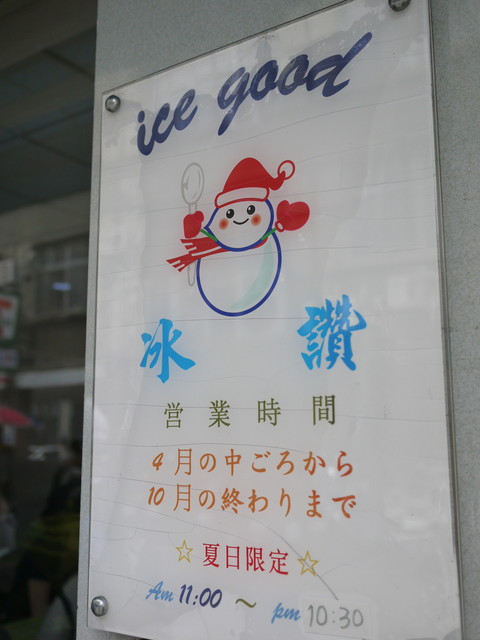 ice good
冰 讚
営業時間
4月の中ごろから
10月の終わりまで
☆夏日限定☆
Am 11:00 ～ pm 10:30